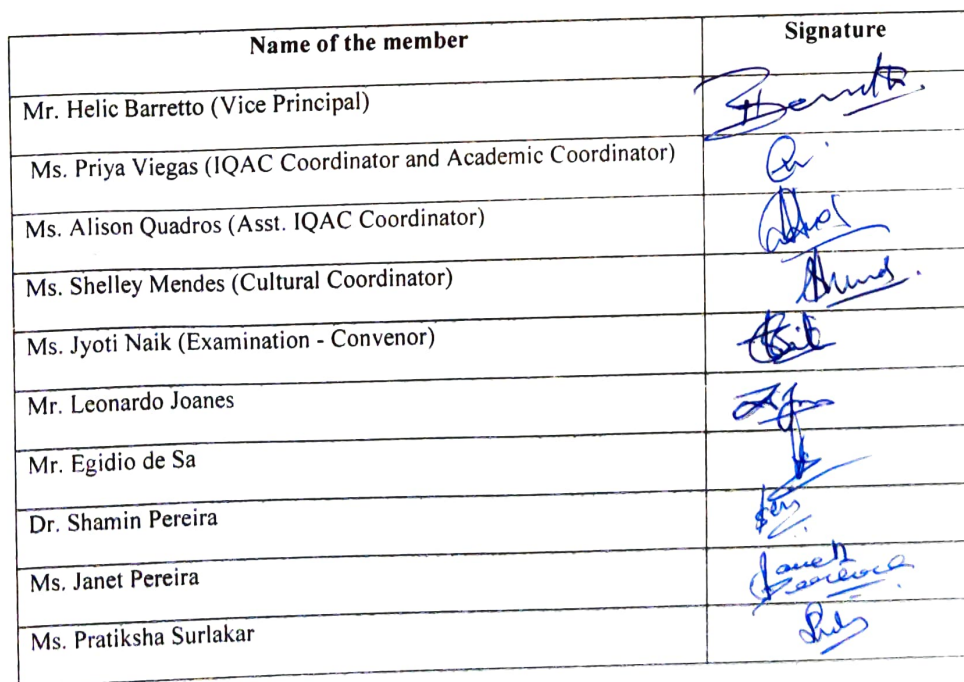 Name of the member Signature
Mr. Helic Barretto (Vice Principal)
Ms. Priya Viegas (IQAC Coordinator and Academic Coordinator)
Ms. Alison Quadros (Asst. IQAC Coordinator)
Ms. Shelley Mendes (Cultural Coordinator)
Ms. Jyoti Naik (Examination - Convenor)
Mr. Leonardo Joanes
Mr. Egidio de Sa
Dr. Shamin Pereira
Ms. Janet Pereira
Ms. Pratiksha Surlakar